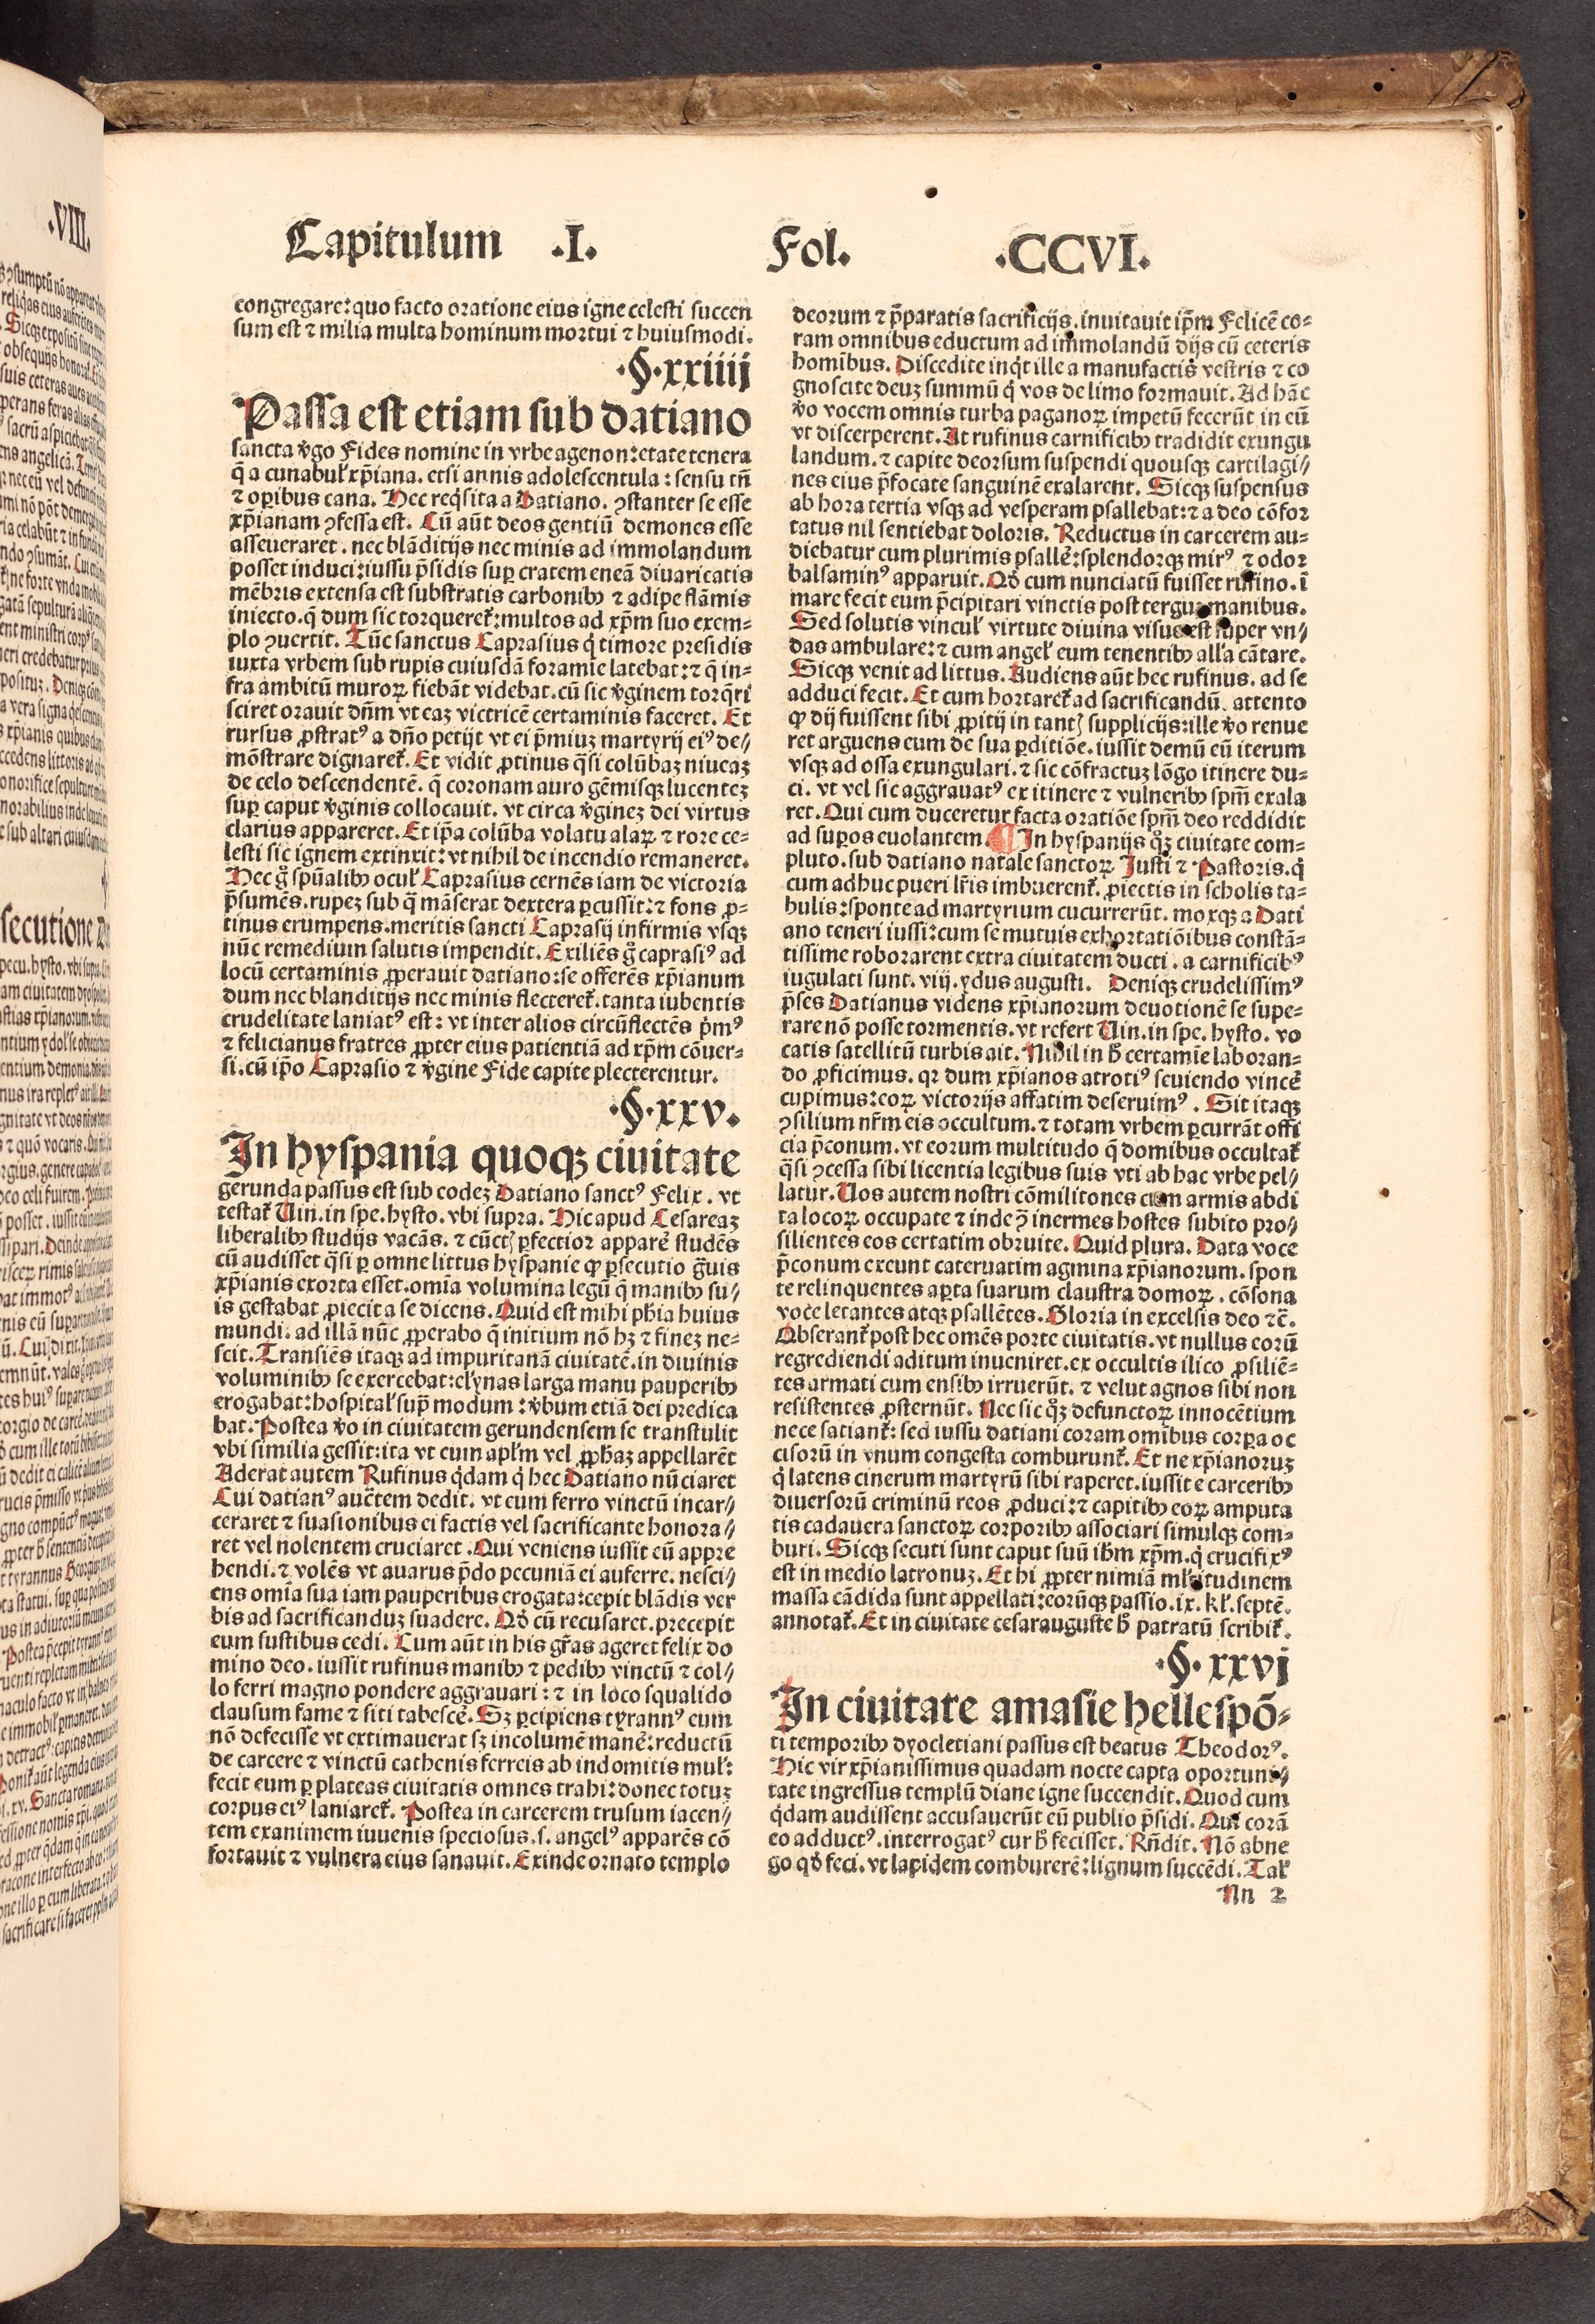 .VIII.
Capitulum .I. Fol. .CCVI.
congregare: quo facto oratione eius igne celesti succen
sum est ⁊ milia multa hominum mortui ⁊ huiusmodi.
.§.xxiiij
Passa est etiam sub datiano
sancta ṽgo Fides nomine in vrbe agenon: etate tenera
q̄ a cunabuł xp̄iana. etsi annis adolescentula: sensu tñ
⁊ opibus cana. Hec req̇sita a Datiano. ꝯstanter se esse
xp̄ianam ꝯfessa est. Cū aūt deos gentiū demones esse
asseueraret. nec blāditijs nec minis ad immolandum
posset induci: iussu p̄sidis sup cratem eneā diuaricatis
mēbris extensa est substratis carbonibꝫ ⁊ adipe flāmis
iniecto. q̄ dum sic torqueret᷑: multos ad xp̄m suo exem-
plo ꝯuertit. Tūc sanctus Caprasius q̇ timore presidis
iuxta vrbem sub rupis cuiusdā foramie latebat: ⁊ q̄ in-
fra ambitū muroꝝ fiebāt videbat. cū sic ṽginem torq̄ri
sciret orauit dn̄m vt eaꝫ victricē certaminis faceret. Et
rursus ꝓstratꝰ a dn̄o petijt vt ei p̄miuꝫ martyrij eiꝰ de//
mōstrare dignaret᷑. Et vidit ꝓtinus q̄si colūbaꝫ niueaꝫ
de celo descendentē. q̄ coronam auro gēmisqꝫ lucenteꝫ
suꝑ caput ṽginis collocauit. vt circa ṽgineꝫ dei virtus
clarius appareret. Et ip̄a colūba volatu alaꝝ ⁊ rore ce-
lesti sic ignem extinxit: vt nihil de incendio remaneret.
Hec g̊ spūalibꝫ ocuł Caprasius cernēs iam de victoria
p̄sumēs. rupeꝫ sub q̄ māserat dextera ꝑcussit: ⁊ fons ꝓ-
tinus erumpens. meritis sancti Caprasij infirmis vsqꝫ
nūc remedium salutis impendit. Exiliēs g̊ caprasiꝰ ad
locū certaminis ꝓperauit datiano: se offerēs xp̄ianum
dum nec blanditijs nec minis flecteret᷑. tanta iubentis
crudelitate laniatꝰ est: vt inter alios circūflectēs ṗmꝰ
⁊ felicianus fratres ꝓpter eius patientiā ad xp̄m cōuer-
si. cū ip̄o Caprasio ⁊ ṽgine Fide capite plecterentur.
.§.xxv.
In hyspania quoqꝫ ciuitate
gerunda passus est sub eodeꝫ Datiano sanctꝰ Felix. vt
testat᷑ Uin. in spe. hysto. vbi supra. Hic apud Cesareaꝫ
liberalibꝫ studijs vacās. ⁊ cūctꝭ ꝑfectior apparē studēs
cū audisset q̄si ꝑ omne littus hyspanie ꝙ ꝑsecutio g̃uis
xp̄ianis exorta esset. omīa volumina legū q̄ manibꝫ su//
is gestabat ꝓiecit a se dicens. Quid est mihi ph̄ia huius
mundi. ad illā nūc ꝓperabo q̄ initium nō hꝫ ⁊ fineꝫ ne-
scit. Transiēs itaqꝫ ad impuritanā ciuitatē. in diuinis
voluminibꝫ se exercebat: elꝭynas larga manu pauperibꝫ
erogabat: hospitał sup̄ modum: ṽbum etiā dei predica
bat. Postea ṽo in ciuitatem gerundensem se transtulit
vbi similia gessit: ita vt eum apłm vel ꝓph̄aꝫ appellarēt
Aderat autem Rufinus q̇dam q̇ hec Datiano nūciaret
Cui datianꝰ auc̄tem dedit. vt eum ferro vinctū incar//
ceraret ⁊ suasionibus ei factis vel sacrificante honora//
ret vel nolentem cruciaret. Qui veniens iussit eū appre
hendi. ⁊ volēs vt auarus p̄do pecuniā ei auferre. nesci//
ens omīa sua iam pauperibus erogata: cepit blādis ver
bis ad sacrificanduꝫ suadere. Qd̕ cū recusaret. precepit
eum fustibus cedi. Cum aūt in his gr̄as ageret felix do
mino deo. iussit rufinus manibꝫ ⁊ pedibꝫ vinctū ⁊ col//
lo ferri magno pondere aggrauari: ⁊ in loco squalido
clausum fame ⁊ siti tabescē. Sꝫ ꝑcipiens tyrannꝰ eum
nō defecisse vt extimauerat sꝫ incolumē manē: reductū
de carcere ⁊ vinctū cathenis ferreis ab indomitis muł:
fecit eum ꝑ plateas ciuitatis omnes trahi: donec totuꝫ
corpus eiꝰ laniaret᷑. Postea in carcerem trusum iacen//
tem exanimem iuuenis speciosus. s. angelꝰ apparēs cō
fortauit ⁊ vulnera eius sanauit. Exinde ornato templo
deorum ⁊ p̄paratis sacrificijs. inuitauit ip̄m Felicē co-
ram omnibus eductum ad immolandū dijs cū ceteris
homībus. Discedite inq̇t ille a manufactis vestris ⁊ co
gnoscite deuꝫ summū q̇ vos de limo formauit. Ad hāc
ṽo vocem omnis turba paganoꝝ impetū fecerūt in eū
vt discerperent. At rufinus carnificibꝫ tradidit exungu
landum. ⁊ capite deorsum suspendi quousqꝫ cartilagi//
nes eius p̄focate sanguinē exalarent. Sicqꝫ suspensus
ab hora tertia vsqꝫ ad vesperam psallebat: ⁊ a deo cōfor
tatus nil sentiebat doloris. Reductus in carcerem au-
diebatur cum plurimis psallē: splendorqꝫ mirꝰ ⁊ odor
balsaminꝰ apparuit. Qd̕ cum nunciatū fuisset rufino. ī
mare fecit eum p̄cipitari vinctis post terguꝫ manibus.
Sed solutis vincuł virtute diuina visus est super vn//
das ambulare: ⁊ cum angeł eum tenentibꝫ alła cātare.
Sicqꝫ venit ad littus. Audiens aūt hec rufinus. ad se
adduci fecit. Et cum hortaret᷑ ad sacrificandū. attento
ꝙ dij fuissent sibi ꝓpitij in tantꝭ supplicijs: ille ṽo renue
ret arguens eum de sua ꝑditiōe. iussit demū eū iterum
vsqꝫ ad ossa exungulari. ⁊ sic cōfractuꝫ lōgo itinere du-
ci. vt vel sic aggrauatꝰ ex itinere ⁊ vulneribꝫ sp̄m exala
ret. Qui cum duceretur facta oratiōe sp̄m deo reddidit
ad supos euolantem. ¶ In hyspanijs q̊ꝫ ciuitate com-
pluto. sub datiano natale sanctoꝝ Iusti ⁊ Pastoris. q̇
cum adhuc pueri lr̄is imbuerent᷑. ꝓiectis in scholis ta-
bulis: sponte ad martyrium cucurrerūt. moxqꝫ a Dati
ano teneri iussi: cum se mutuis exhortatiōibus constā-
tissime roborarent extra ciuitatem ducti. a carnificibꝰ
iugulati sunt. viij. ydus augusti. Deniqꝫ crudelissimꝰ
p̄ses Datianus videns xp̄ianorum deuotionē se supe-
rare nō posse tormentis. vt refert Uin. in spe. hysto. vo
catis satellitū turbis ait. Nihil in h̕ certamīe laboran-
do ꝓficimus. qꝛ dum xp̄ianos atrotiꝰ seuiendo vincē
cupimus: eoꝝ victorijs affatim deseruimꝰ. Sit itaqꝫ
ꝯsilium nr̄m eis occultum. ⁊ totam vrbem ꝑcurrāt offi
cia p̄conum. vt eorum multitudo q̄ domibus occultat᷑
q̄si ꝯcessa sibi licentia legibus suis vti ab hac vrbe pel//
latur. Uos autem nostri cōmilitones cum armis abdi
ta locoꝝ occupate ⁊ inde ꝯ̄ inermes hostes subito pro//
silientes eos certatim obruite. Quid plura. Data voce
p̄conum exeunt cateruatim agmina xp̄ianorum. spon
te relinquentes apta suarum claustra domoꝝ. cōsona
voce letantes atqꝫ psallētes. Gloria in excelsis deo ⁊c̄.
Obserant᷑ post hec omēs porte ciuitatis. vt nullus eorū
regrediendi aditum inueniret. ex occultis ilico ꝓsiliē-
tes armati cum ensibꝫ irruerūt. ⁊ velut agnos sibi non
resistentes ꝓsternūt. Nec sic q̊ꝫ defunctoꝝ innocētium
nece satiant᷑: sed iussu datiani coram omībus corpa oc
cisorū in vnum congesta comburunt᷑. Et ne xp̄ianoruꝫ
q̇ latens cinerum martyrū sibi raperet. iussit e carceribꝫ
diuersorū criminū reos ꝓduci: ⁊ capitibꝫ eoꝝ amputa
tis cadauera sanctoꝝ corporibꝫ associari simulqꝫ com-
buri. Sicqꝫ secuti sunt caput suū ih̄m xp̄m. q̇ crucifixꝰ
est in medio latronuꝫ. Et hi ꝓpter nimiā młtitudinem
massa cādida sunt appellati: eorūqꝫ passio. ix. kł. septē.
annotat᷑. Et in ciuitate cesarauguste h̕ patratū scribit᷑.
.§.xxvj
In ciuitate amasie hellespō-
ti temporibꝫ dyocletiani passus est beatus Theodorꝰ.
Hic vir xp̄ianissimus quadam nocte capta oportuni//
tate ingressus templū diane igne succendit. Quod cum
q̇dam audissent accusauerūt eū publio p̄sidi. Qui corā
eo adductꝰ. interrogatꝰ cur h̕ fecisset. Rn̄dit. Nō abne
go qd̕ feci. vt lapidem comburerē: lignum succēdi. Tał
Nn 2